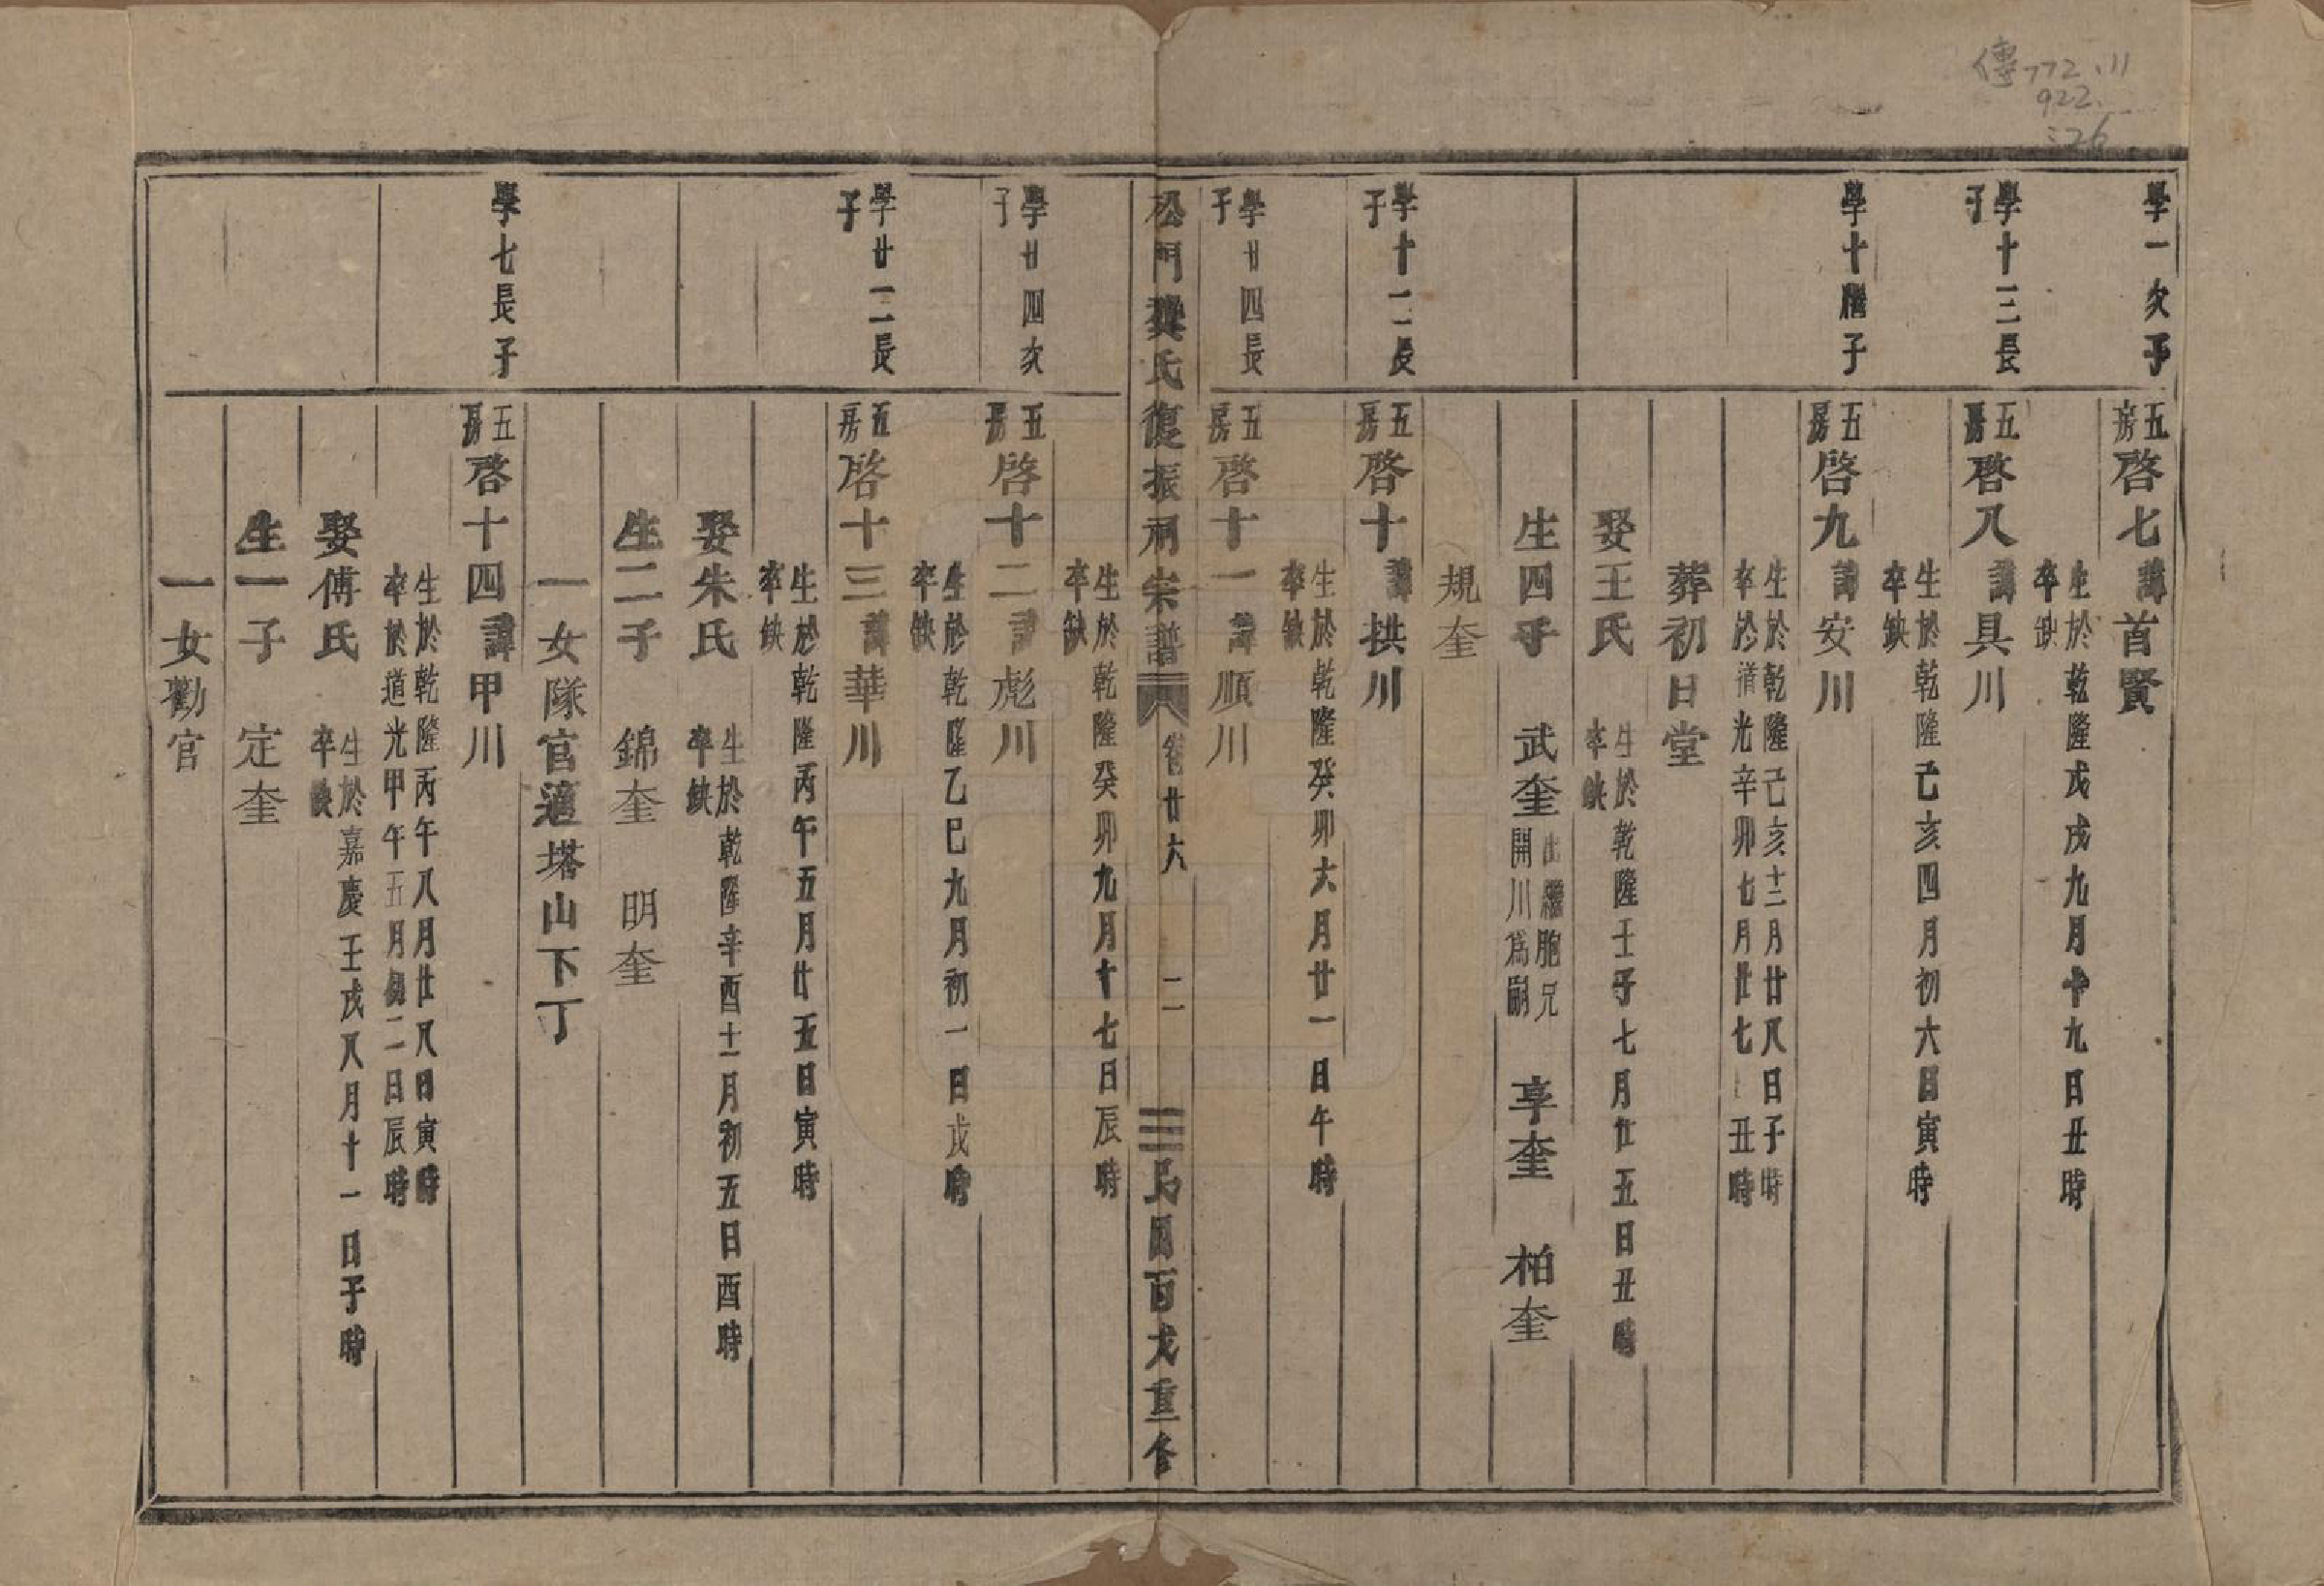 傳772.11
922.
:26
學一次子
五房啓七諱首賢
生於乾隆戊戌九月十九日丑時
卒缺
學十三長子
五房啓八諱具川
生於乾隆己亥四月初六日寅時
卒缺
學十膳子
五房啓九諱安川
生於乾隆己亥十二月廿八日子時
卒於道光辛卯七月廿七 丑時
葬初日堂
娶王氏
生於乾隆壬子七月廿五日丑時
卒缺
生四子 武奎出繼胞兄開川為嗣 享奎 柏奎
規奎
學十二長子
五房啓十諱拱川
生於乾隆癸卯六月廿一日午時
卒缺
學廿四長子
五房啓十一諱順川
生於乾隆癸卯九月十七日辰時
卒缺
松門龔氏復振祠宗譜 卷廿六 二 民國百戈重修
學廿四次子
五房啓十二諱彪川
生於乾隆乙巳九月初一日戌時
卒缺
學廿一二長子
五房啓十三諱華川
生於乾隆丙午五月廿五日寅時
卒缺
娶朱氏
生於乾隆辛酉十二月初五日酉時
卒缺
生二子 錦奎 明奎
一女隊官適塔山下丁
學七長子
五房啓十四諱甲川
生於乾隆丙午八月廿八日寅時
卒於道光甲午五月初二日辰時
娶傅氏
生於嘉慶壬戌八月十一日子時
卒缺
生一子 定奎
一女勸官